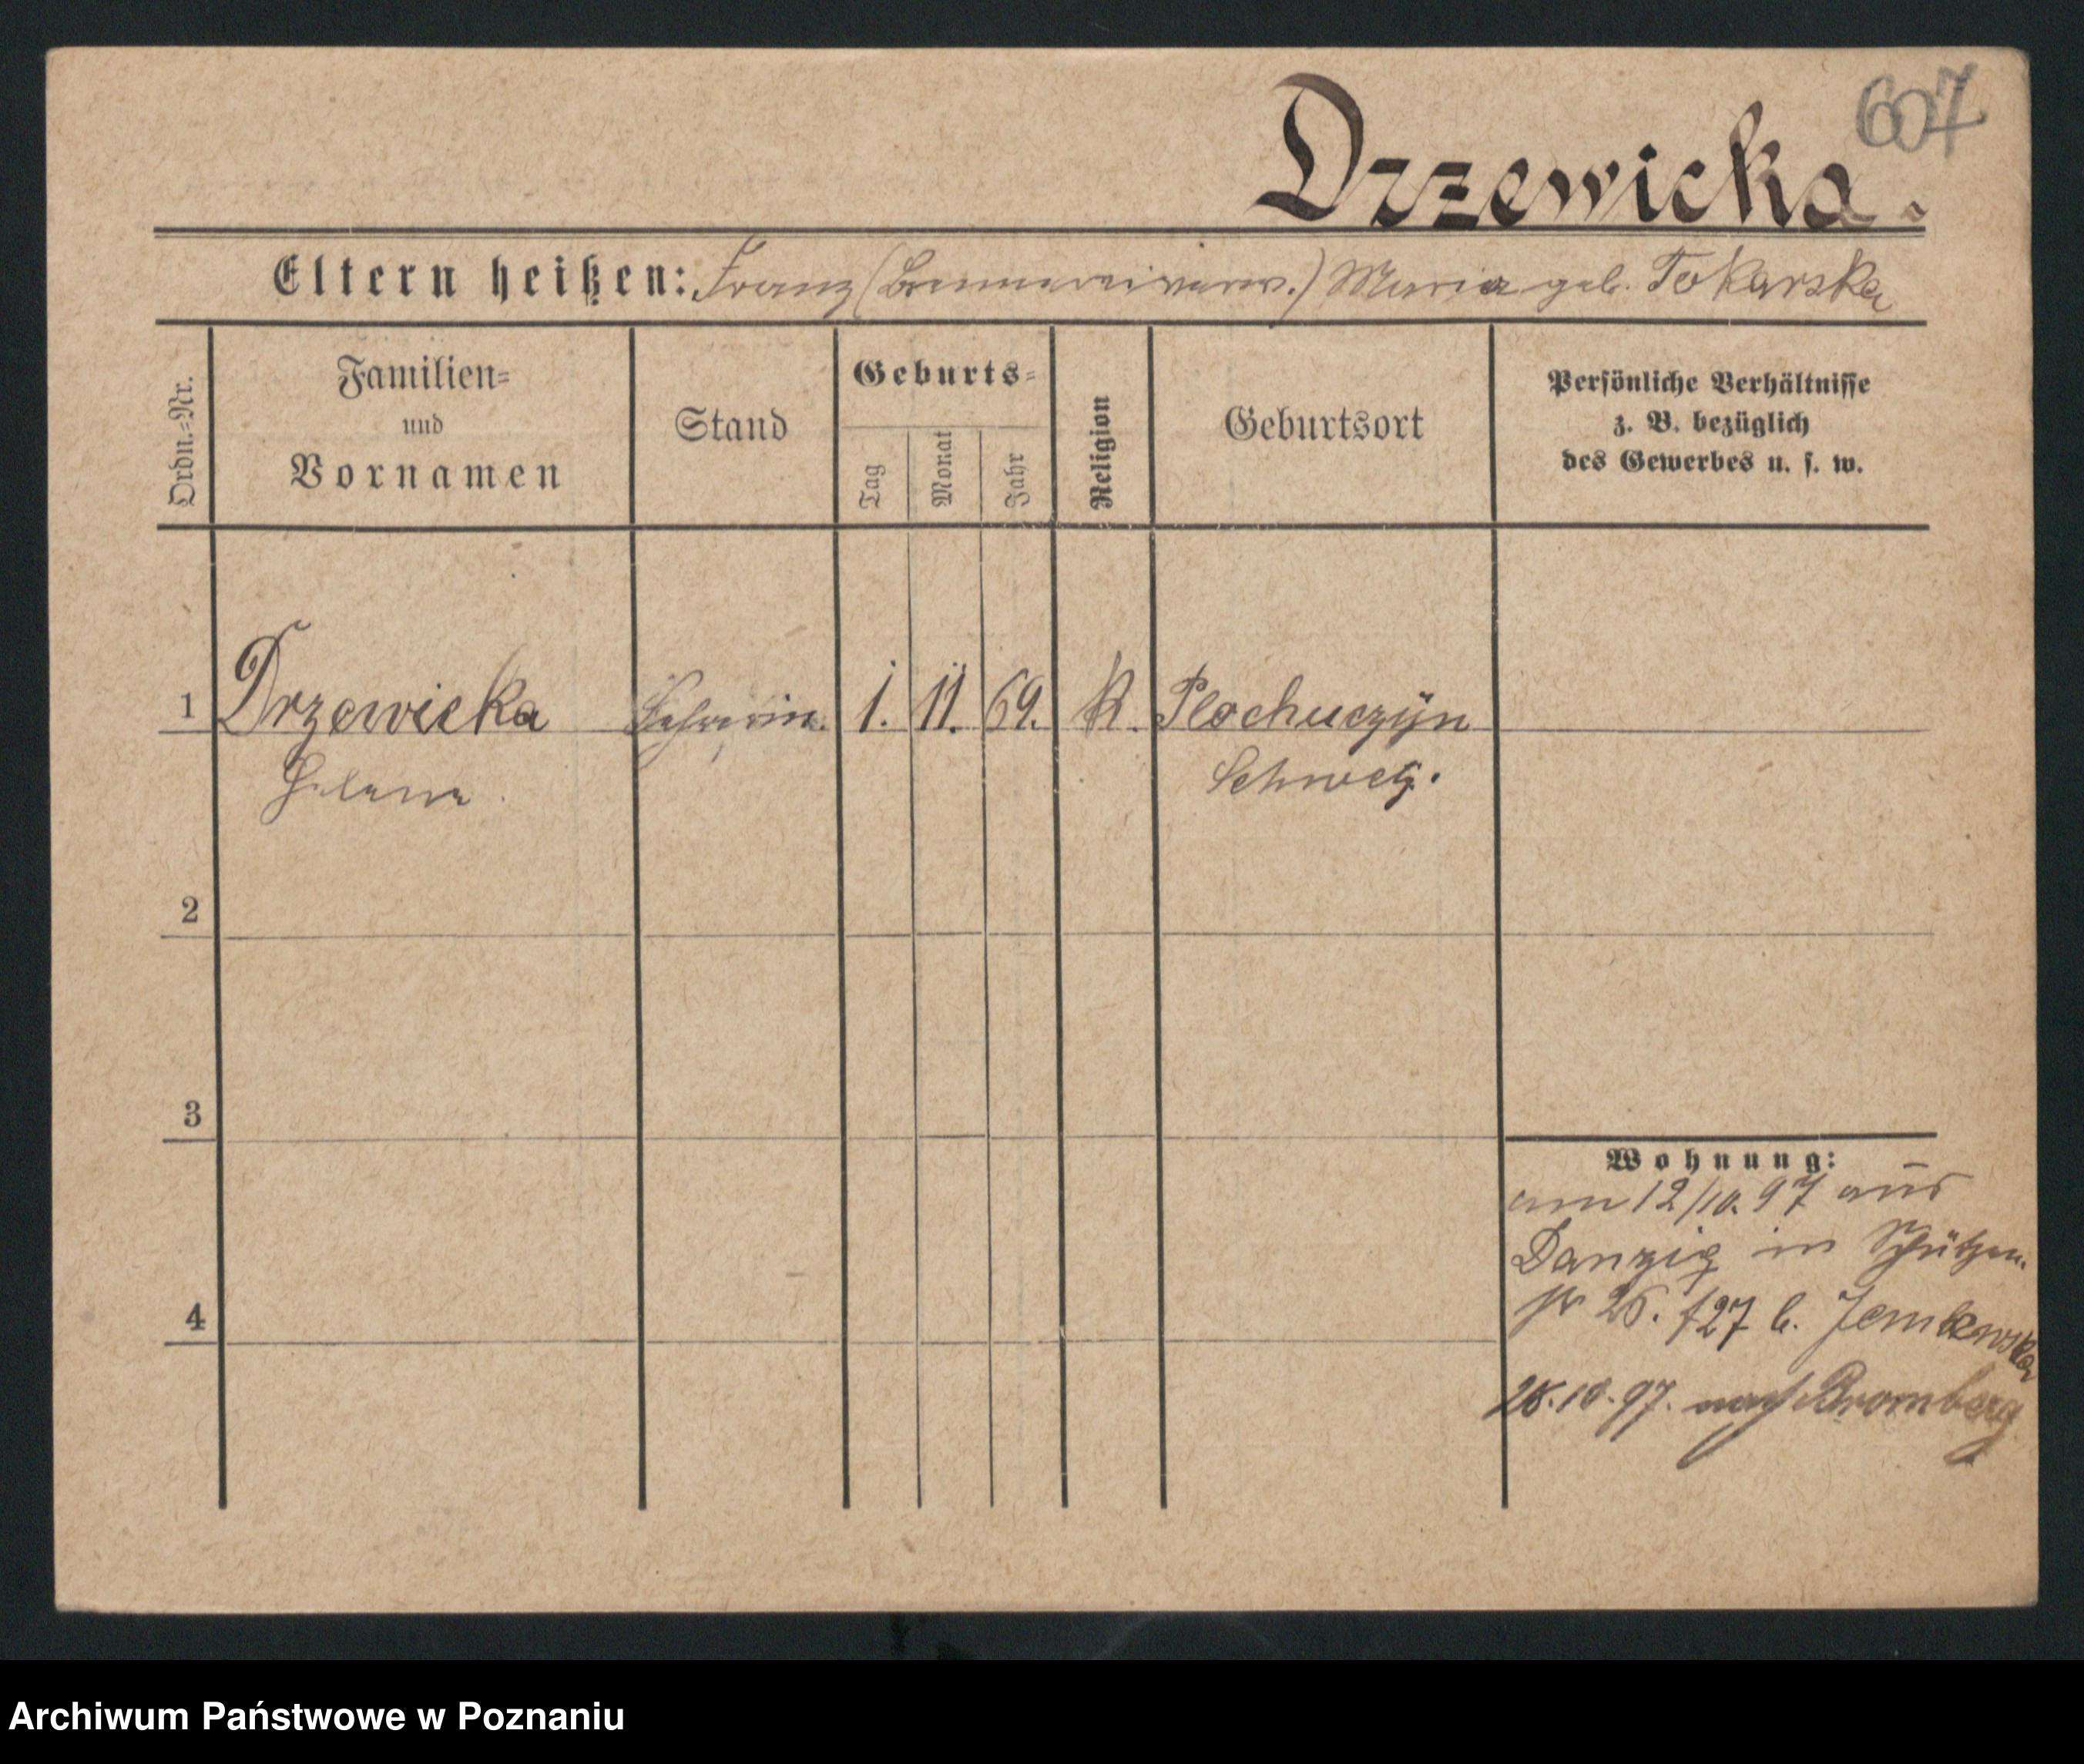 607
Drzewicka.
Eltern heißen: Franz (Brennereiverw.) Maria geb. Tokarska
Ordn.=Nr.
Familien=
und
Vornamen
Stand
Geburts=
Tag
Monat
Jahr
Religion
Geburtsort
Persönliche Verhältnisse
z. B. bezüglich
des Gewerbes u. s. w.
1 Drzewicka 1. 11. 69. K. Plochuczyn
Helena Schwetz.
2
3
4
Wohnung:
am 12/10. 97 aus
Danzig in Schützen-
str 26. b.
28.10.97. nach Bromberg
Archiwum Państwowe w Poznaniu